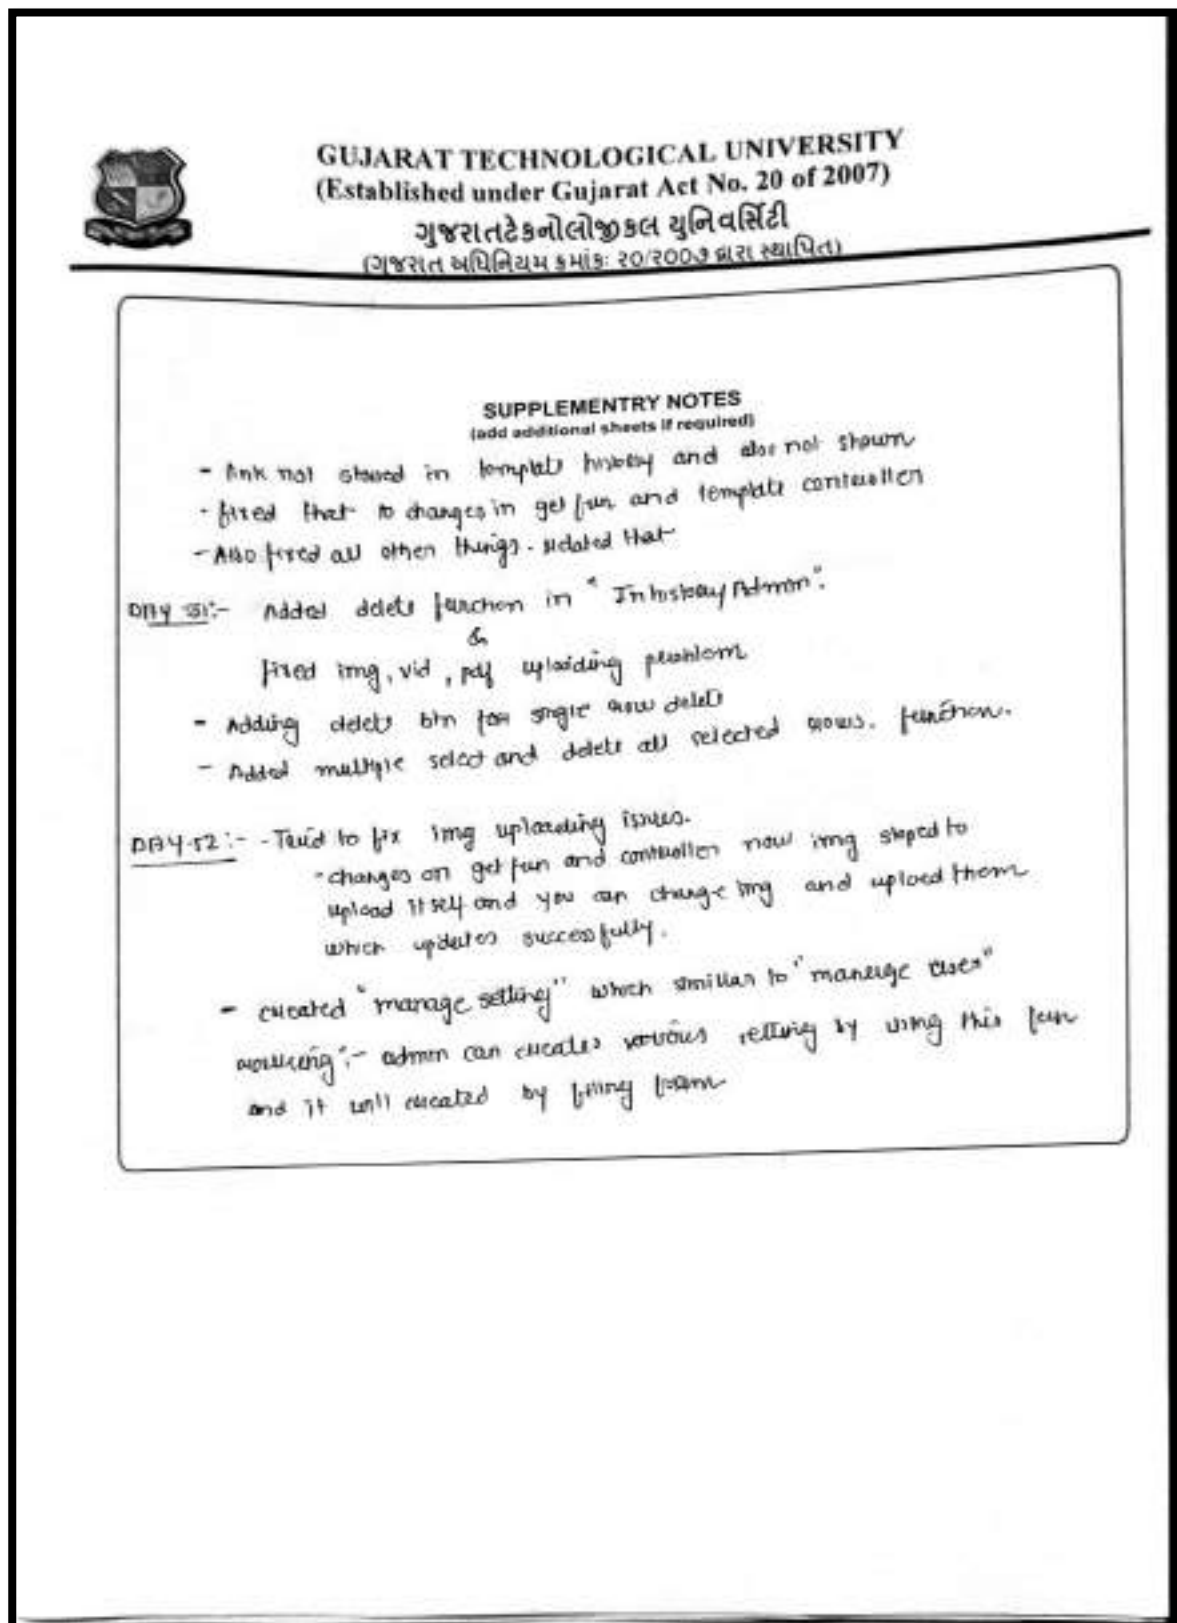 GUJARAT TECHNOLOGICAL UNIVERSITY
(Established under Gujarat Act No. 20 of 2007)
ગુજરાતટેકનોલોજીકલ યુનિવર્સિટી
(ગુજરાત અધિનિયમ ક્રમાંકઃ ૨૦/૨૦૦૭ દ્વારા સ્થાપિત)
SUPPLEMENTRY NOTES
(add additional sheets if required)
- link not stored in template history and also not shown
- fixed that to changes in get fun and template controller
- Also fixed all other things. related that
DAY 51:- Added delete function in "Inhistory Admin".
&
fixed img, vid, pdf uploading problem
- Adding delete btn for single row delete
- Added multiple select and delete all selected rows. function.
DAY-52:- - Tried to fix img uploading issues.
- changes on get fun and controller now img stoped to
upload itself and you can change img and upload them
which updates successfully.
- created "manage setting" which similar to "manage user"
working:- admin can creates various setting by using this fun
and it will created by filling form